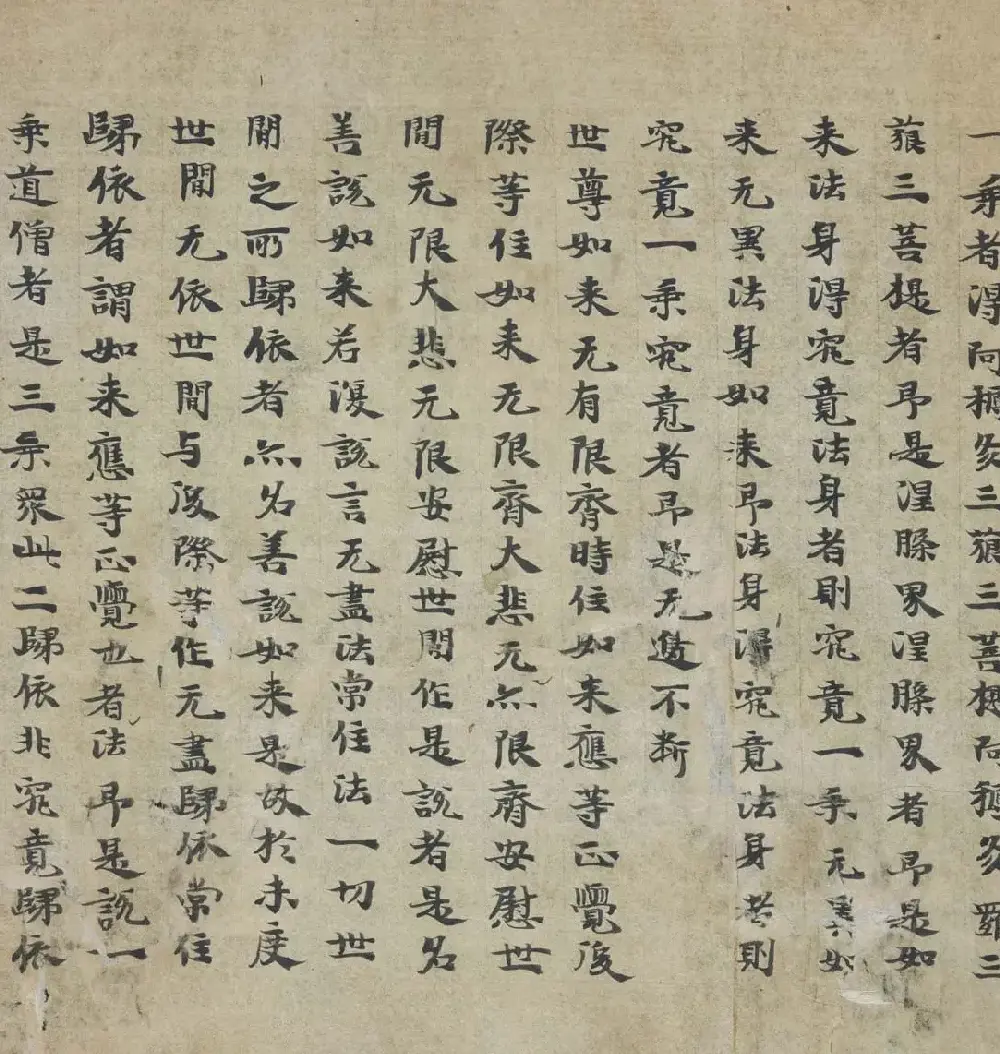 一乗者淂阿耨多三藐三菩提阿耨多羅三
藐三菩提者即是涅槃界涅槃界者即是如
来法身淂究竟法身者則究竟一乗无異如
来无異法身如来即法身淂究竟法身者則
究竟一乗究竟者即是无邊不断
世尊如来无有限齊時住如来應等正覺後
際等住如来无限齊大悲无亦限齊安慰世
間无限大悲无限安慰世間作是說者是名
善說如来若復說言无盡法常住法一切世
間之所歸依者亦名善說如来是故於未度
世間无依世間与後際等作无盡歸依常住
歸依者謂如来應等正覺也者法即是說一
乗道僧者是三乗衆此二歸依非究竟歸依